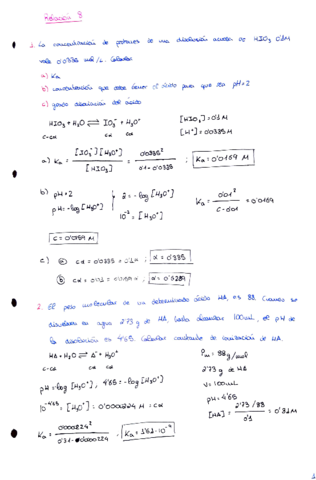 Relación 8
1. La concentración de protones de una disolución acuosa de HIO₃ 0'1M
vale 0'0335 mol/L. Calcular
a) Ka
b) concentración que debe tener el ácido para que sea pH=2
c) grado disociación del ácido
HIO₃ + H₂O ⇌ IO₃⁻ + H₃O⁺ [HIO₃] = 0'1M
c-cα cα cα [H⁺] = 0'0335 M
a) Ka = [IO₃⁻][H₃O⁺] / [HIO₃] = 0'0335² / 0'1-0'0335 ; Ka = 0'0169 M
b) pH = 2 2 = -log [H₃O⁺] Ka = 0'01² / c-0'01 = 0'0169
pH = -log [H₃O⁺] 10⁻² = [H₃O⁺]
c = 0'0159 M
c) ⓐ cα = 0'0335 = 0'1α ; α = 0'335
ⓑ cα = 0'01 = 0'0159 α ; α = 0'6289
2. El peso molecular de un determinado ácido HA, es 88. Cuando se
disuelven en agua 2'73 g de HA, hasta 100mL, el pH de
la disolución es 4'65. Calcular constante de ionización de HA.
HA + H₂O ⇌ A⁻ + H₃O⁺ Pm = 88 g/mol
c-cα cα cα 2'73 g de HA
pH = -log [H₃O⁺] ; 4'65 = -log [H₃O⁺] V = 100mL
pH = 4'65
10⁻⁴'⁶⁵ = [H₃O⁺] = 0'0000224 M = cα [HA] = 2'73/88 / 0'1 = 0'31 M
Ka = 0'0000224² / 0'31-0'0000224 Ka = 1'62·10⁻⁹